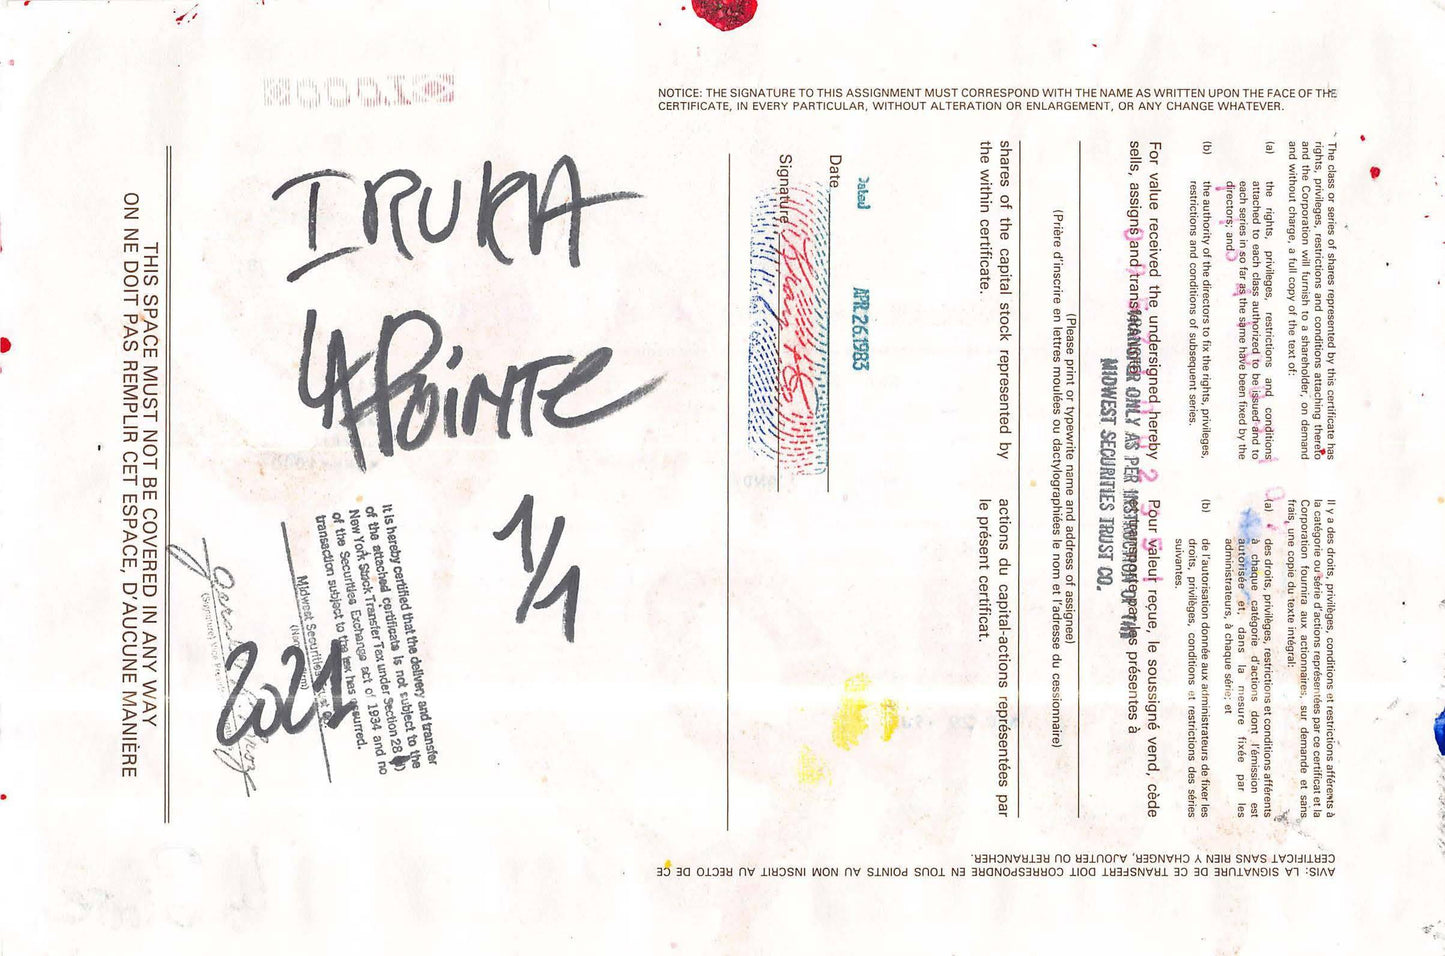 NOTICE: THE SIGNATURE TO THIS ASSIGNMENT MUST CORRESPOND WITH THE NAME AS WRITTEN UPON THE FACE OF THE
CERTIFICATE, IN EVERY PARTICULAR, WITHOUT ALTERATION OR ENLARGEMENT, OR ANY CHANGE WHATEVER.
The class or series of shares represented by this certificate has
rights, privileges, restrictions and conditions attaching thereto
and the Corporation will furnish to a shareholder, on demand
and without charge, a full copy of the text of:
(a) the rights, privileges, restrictions and conditions
attached to each class authorized to be issued and to
each series in so far as the same have been fixed by the
directors; and
(b) the authority of the directors to fix the rights, privileges,
restrictions and conditions of subsequent series.
Il y a des droits, privilèges, conditions et restrictions afférents à
la catégorie ou série d'actions représentées par ce certificat et la
Corporation fournira aux actionnaires, sur demande et sans
frais, une copie du texte intégral:
(a) des droits, privilèges, restrictions et conditions afférents
à chaque catégorie d'actions dont l'émission est
autorisée et, dans la mesure fixée par les
administrateurs, à chaque série; et
(b) de l'autorisation donnée aux administrateurs de fixer les
droits, privilèges, conditions et restrictions des séries
suivantes.
For value received the undersigned hereby
sells, assigns and transfers
Pour valeur reçue, le soussigné vend, cède
et transporte par les présentes à
TRANSFER ONLY AS PER INSTRUCTION OF THE
MIDWEST SECURITIES TRUST CO.
(Please print or typewrite name and address of assignee)
(Prière d'inscrire en lettres moulées ou dactylographiées le nom et l'adresse du cessionnaire)
shares of the capital stock represented by
the within certificate.
actions du capital-actions représentées par
le présent certificat.
Dated APR. 26. 1983
Date
Signature
IRUKA
LAPOINTE
1/1
2021
It is hereby certified that the delivery and transfer
of the attached certificate is not subject to the
New York Stock Transfer Tax under Section 28
of the Securities Exchange act of 1934 and no
transaction subject to the tax has occurred.
Midwest Securities
THIS SPACE MUST NOT BE COVERED IN ANY WAY
ON NE DOIT PAS REMPLIR CET ESPACE, D'AUCUNE MANIÈRE
AVIS: LA SIGNATURE DE CE TRANSFERT DOIT CORRESPONDRE EN TOUS POINTS AU NOM INSCRIT AU RECTO DE CE
CERTIFICAT SANS RIEN Y CHANGER, AJOUTER OU RETRANCHER.